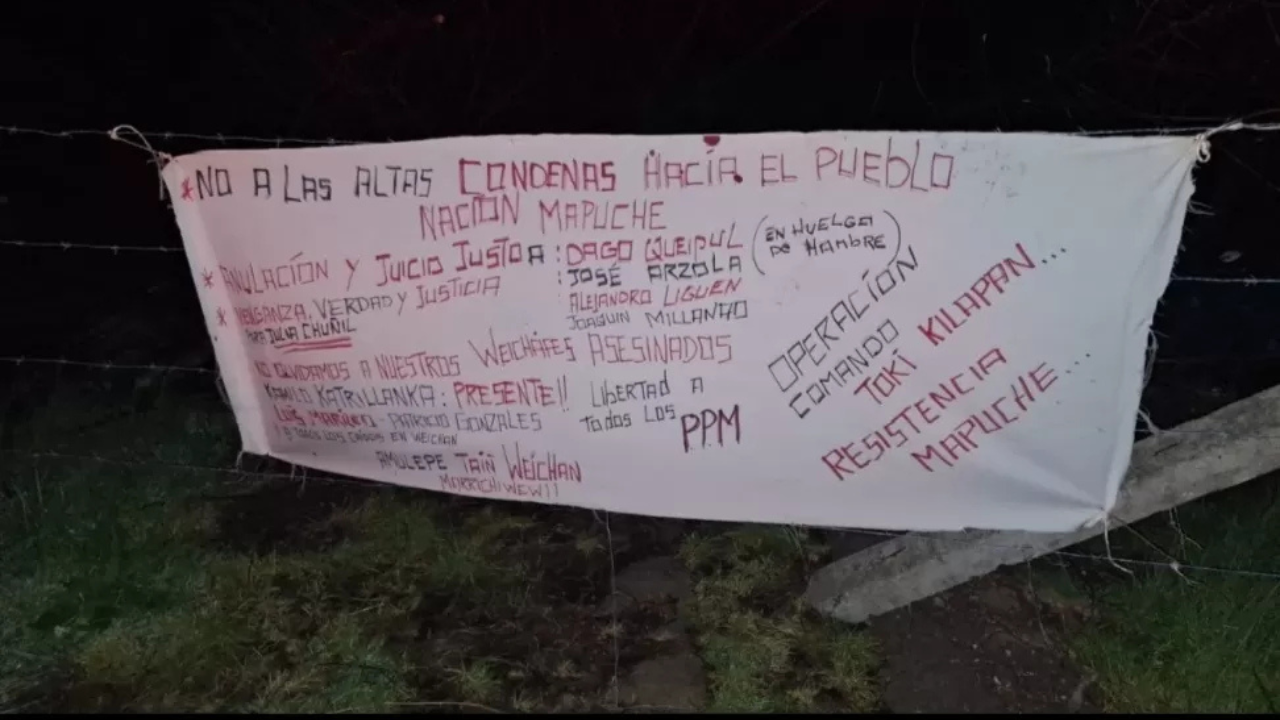 *NO A LAS ALTAS CONDENAS HACÍA EL PUEBLO
NACIÓN MAPUCHE
* ANULACÍON Y JUICIO JUSTO A : DAGO QUEIPUL (EN HUELGA
: JOSÉ ARZOLA DE HAMBRE)
* VENGANZA, VERDAD Y JUSTICIA ALEJANDRO LIGUEN
PARA JULIA CHUÑIL JOAQUIN MILLANAO
NO OLVIDAMOS A NUESTROS WEICHAFES ASESINADOS
KAMILO KATRILLANKA: PRESENTE!! LIBERTAD A
LUIS MARILEO - PATRICIO GONZALES TODOS LOS PPM
Y A TODOS LOS CAIDOS EN WEICHAN
AMULEPE TAIÑ WEICHAN
MARRICHIWEW!!
OPERACÍON
COMANDO
TOKÍ KILAPAN...
RESISTENCIA
MAPUCHE...